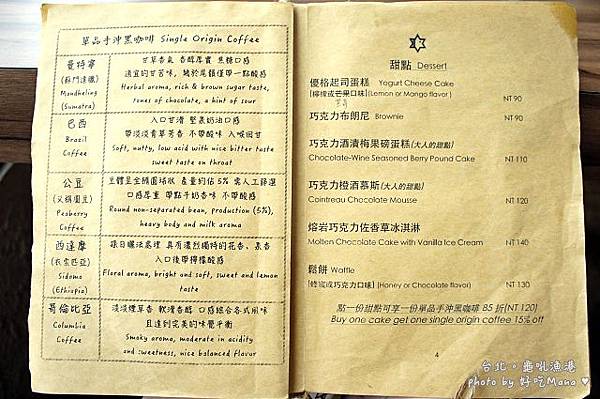 單品手沖黑咖啡 Single Origin Coffee
曼特寧
(蘇門達臘)
Mandheling
(Sumatra)
甘草香氣 香醇厚實 焦糖口感
適宜的甘苦味, 餘於尾韻僅帶一點酸感
Herbal aroma, rich & brown sugar taste,
tones of chocolate, a hint of sour
巴西
Brazil
Coffee
入口甘滑 堅果奶油口感
帶淡淡青草芳香 不帶酸味 入喉回甘
Soft, nutty, low acid with nice bitter taste
sweet taste on throat
公豆
(又稱圓豆)
Peaberry
Coffee
豆體呈全橢圓球狀 產量約佔 5% 需人工篩選
口感厚重 帶點牛奶香味 不帶酸感
Round non-separated bean, production (5%),
heavy body and milk aroma
西達摩
(衣索匹亞)
Sidomo
(Ethiopia)
採日曬法處理 具有濃烈獨特的花香、果香
入口後帶檸檬酸感
Floral aroma, bright and soft, sweet and lemon
taste
哥倫比亞
Columbia
Coffee
淡淡煙草香 軟滑香醇 口感綜合各式風味
且達到完美的味覺平衡
Smoky aroma, moderate in acidity
and sweetness, nice balanced flavor
甜點 Dessert
優格起司蛋糕 Yogurt Cheese Cake
(檸檬或芒果口味)(Lemon or Mango flavor) NT 90
巧克力布朗尼 Brownie NT 90
巧克力酒漬梅果磅蛋糕(大人的甜點)
Chocolate-Wine Seasoned Berry Pound Cake NT 110
巧克力橙酒慕斯(大人的甜點)
Cointreau Chocolate Mousse NT 120
熔岩巧克力佐香草冰淇淋
Molten Chocolate Cake with Vanilla Ice Cream NT 140
鬆餅 Waffle
(蜂蜜或巧克力口味) (Honey or Chocolate flavor) NT 130
點一份甜點可享一份單品手沖黑咖啡 85 折(NT 120)
Buy one cake get one single origin coffee 15% off
4
台北。靈吼漁港
photo by 好吃Mana ♥